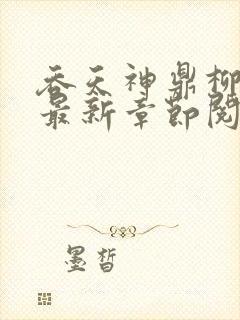 吞天神鼎柳
最新章節閱
墨皙